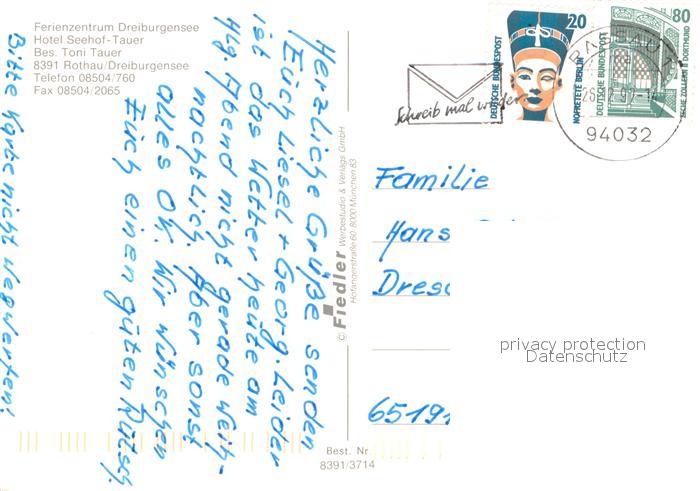 Ferienzentrum Dreiburgensee
Hotel Seehof-Tauer
Bes. Toni Tauer
8391 Rothau/Dreiburgensee
Telefon 08504/760
Fax 08504/2065
Herzliche Grüße senden
Euch Liesel + Georg. Leider
ist das Wetter heute am
Hlg. Abend nicht gerade Weih-
nachtlich. Aber sonst
alles OK. Wir wünschen
Euch einen guten Rutsch.
Bitte Karte nicht wegwerfen!
© Fiedler Werbestudio & Verlags GmbH
Hofangerstraße 60 8000 München 83
Best. Nr.
8391/3714
Schreib mal wieder
20
DEUTSCHE BUNDESPOST
NOFRETETE BERLIN
80
DEUTSCHE BUNDESPOST
ZECHE ZOLLERN II DORTMUND
PASSAU 1
94032
Familie
Hans
Dresd
65191
privacy protection
Datenschutz